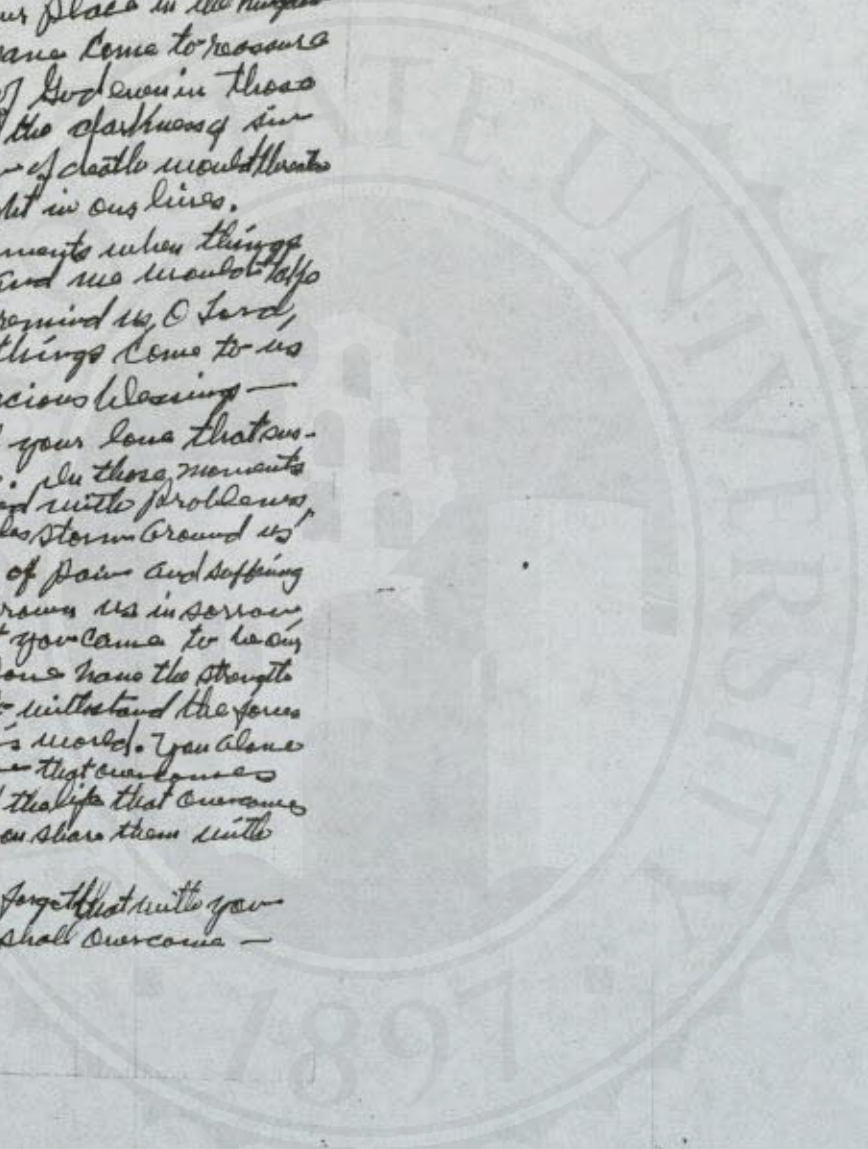 our place in the
come to reassure
of God even in those
the darkness of sin
of death would threaten
in our lives.
moments when things
and we would
remind us, O Lord,
things come to us
gracious blessing —
your love that sus-
. In those moments
with problems,
storm around us"
of pain and suffering
drown us in sorrow
you came to be our
alone have the strength
to withstand the forces
's world. You alone
that overcomes
the life that overcomes
you share them with
forget that with you
shall overcome —
STATE UNIVERSITY
1897